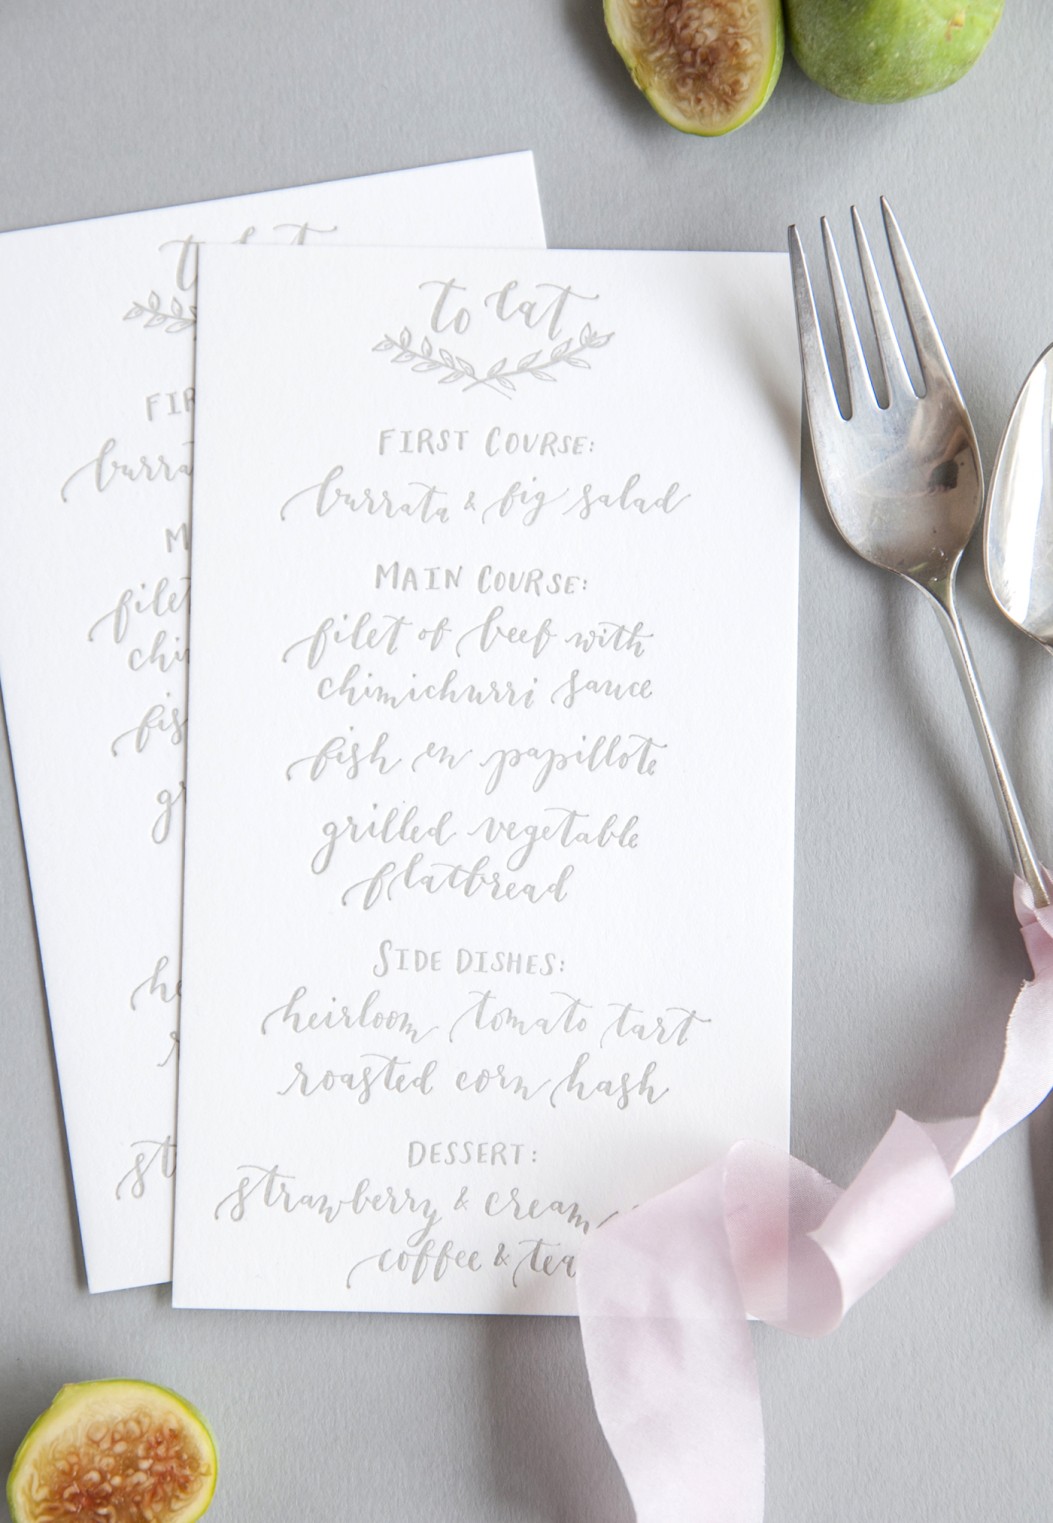 to eat
FIRST COURSE:
burrata & fig salad
MAIN COURSE:
filet of beef with
chimichurri sauce
fish en papillote
grilled vegetable
flatbread
SIDE DISHES:
heirloom tomato tart
roasted corn hash
DESSERT:
strawberry & cream
coffee & tea